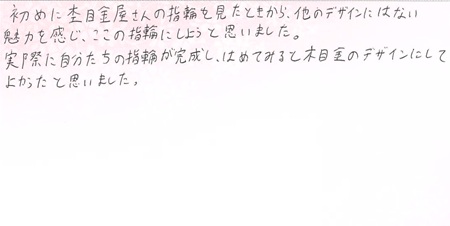 初めに杢目金屋さんの指輪を見たときから、他のデザインにはない
魅力を感じ、ここの指輪にしようと思いました。
実際に自分たちの指輪が完成し、はめてみると木目金のデザインにして
よかったと思いました。